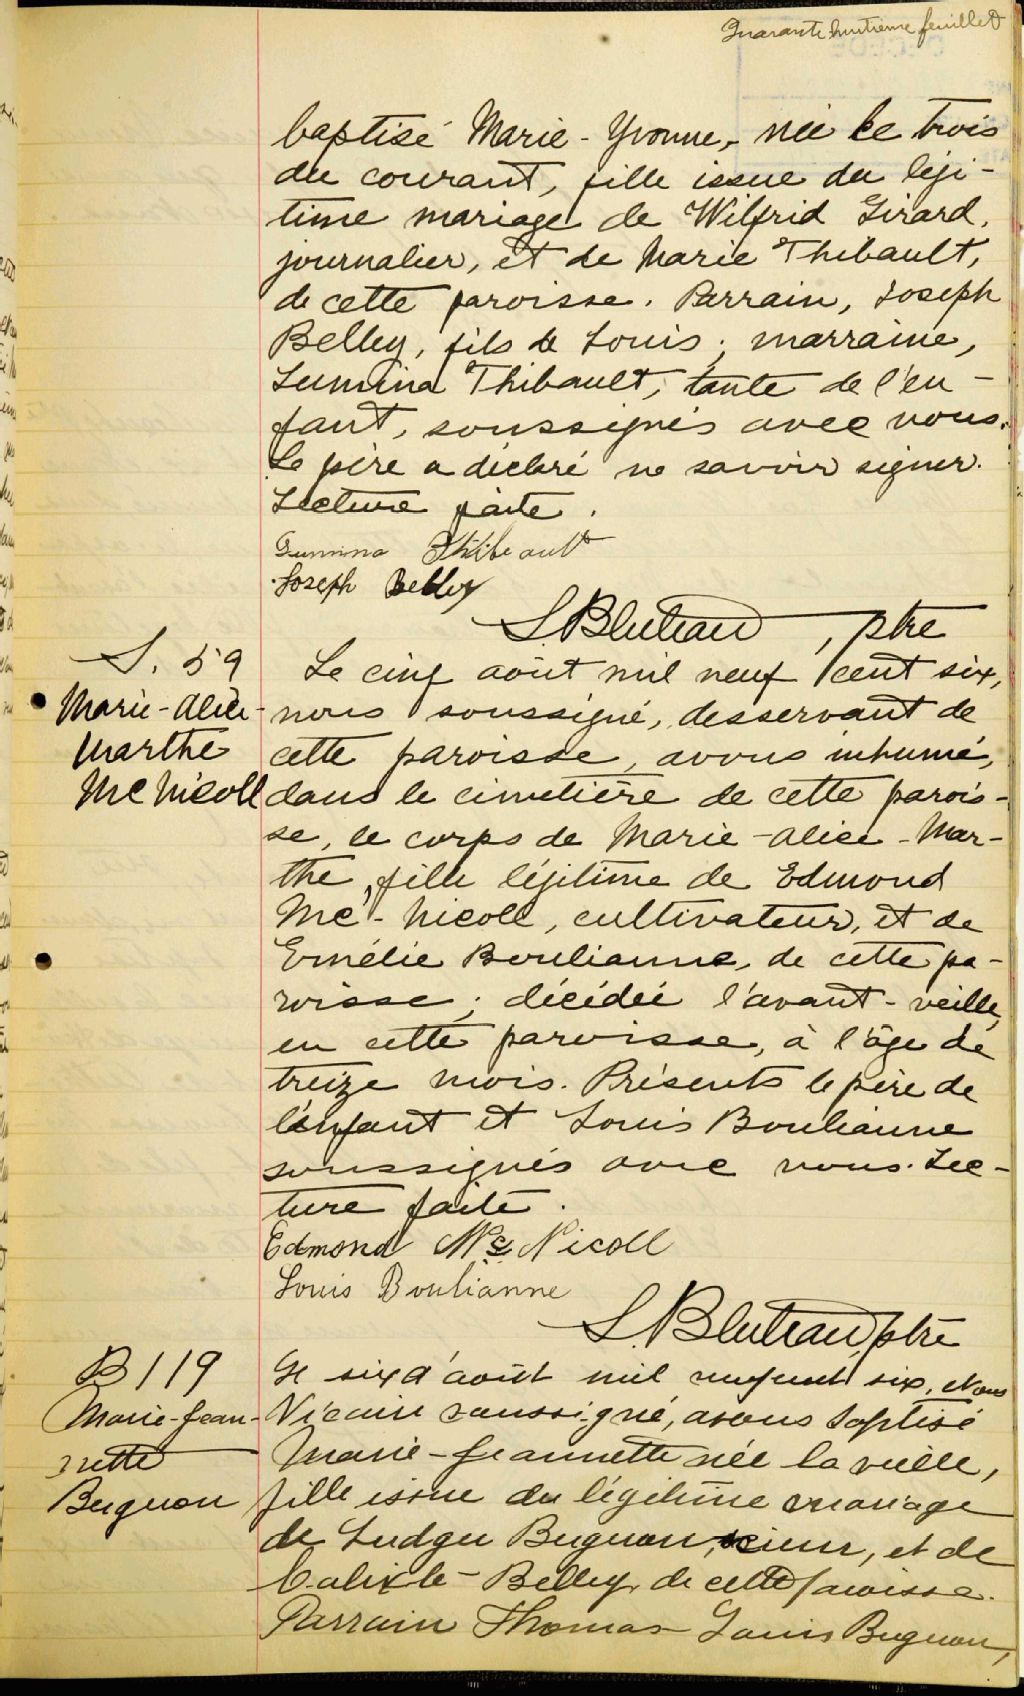 Quarante huitième feuillet
baptisé Marie-Yvonne, née le trois
du courant, fille issue du légi-
time mariage de Wilfrid Girard,
journalier, et de Marie Thibault,
de cette paroisse. Parrain, Joseph
Belley, fils de Louis; marraine,
Lumina Thibault, tante de l'en-
fant, soussignés avec nous.
Le père a déclaré ne savoir signer.
Lecture faite.
Lumina Thibeault
Joseph Belley
L Bluteau, ptre
S. 59
Marie-Alice-
Marthe
McNicoll
Le cinq août mil neuf cent six,
nous soussigné, desservant de
cette paroisse, avons inhumé,
dans le cimetière de cette parois-
se, le corps de Marie-Alice-Mar-
the, fille légitime de Edmond
Mc-Nicoll, cultivateur, et de
Emélie Boulianne, de cette pa-
roisse; décédée l'avant-veille,
en cette paroisse, à l'âge de
treize mois. Présents le père de
l'enfant et Louis Boulianne
soussignés avec nous. Lec-
ture faite.
Edmond Mc Nicoll
Louis Boulianne
L. Bluteau, ptre
B 119
Marie-Jean-
nette
Bugnon
Le six d'août mil neuf cent six, Nous
Vicaire soussigné, avons baptisé
Marie-Jeannette née la veille,
fille issue du légitime mariage
de Ludger Bugnon, scieur, et de
Calixte Belley, de cette paroisse.
Parrain Thomas Louis Bugnon,